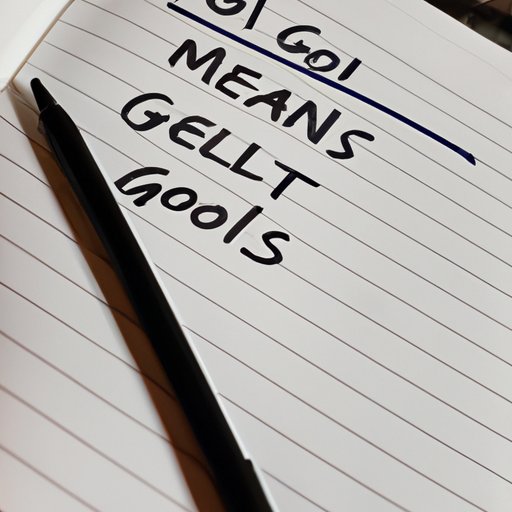 GOI
MEANS
GELLT
GOOIS